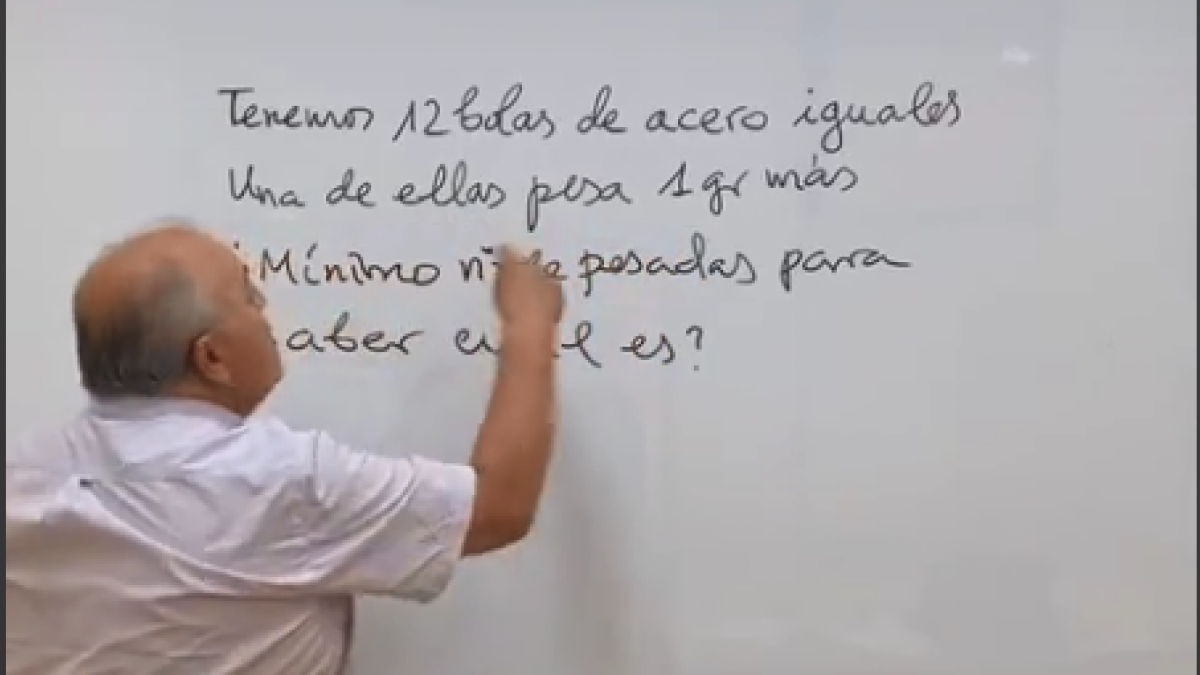 Tenemos 12 bolas de acero iguales
Una de ellas pesa 1 gr más
¿Mínimo nº de pesadas para
es?